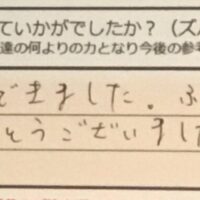 ていかがでしたか？（ズバ
達の何よりの力となり今後の参考
できました。ふ
とうございました